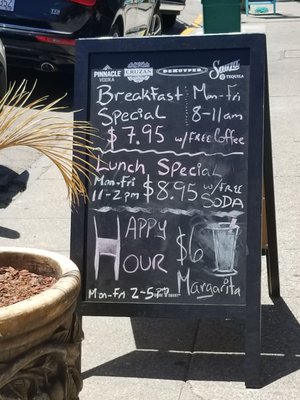 PINNACLE
VODKA
CRUZAN
DEKUYPER
Sauza
TEQUILA
Breakfast Mon-Fri
Special 8-11am
$7.95 w/FREE Coffee
Lunch Special
Mon-Fri $8.95 w/FREE
11-2pm SODA
HAPPY
HOUR $6
Margarita
Mon-Fri 2-5pm